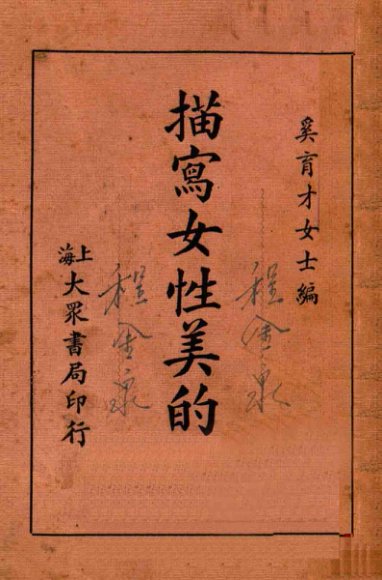 奚育才女士編
程金泉
描寫女性美的
程金泉
上海大眾書局印行